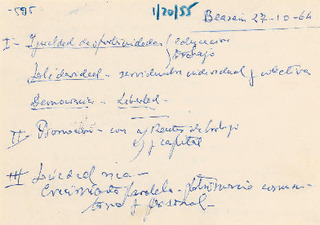 -595
1/20/55
Beasain 27-10-64
I - Igualdad de oportunidades { educacion
trabajo
Solidaridad - servidumbre individual y colectiva
Democracia - Libertad -
II - Promoción - con a) Rentas de trabajo
b) y capital
III Sociedad rica -
Crecimiento paralelo - patrimonio comuni-
tario y personal -